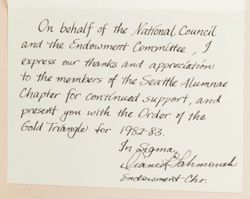 On behalf of the National Council
and the Endowment Committee, I
express our thanks and appreciation
to the members of the Seattle Alumnae
Chapter for continued support, and
present you with the Order of the
Gold Triangle for 1982-83.
In Sigma,
Diane
Endowment Chr.